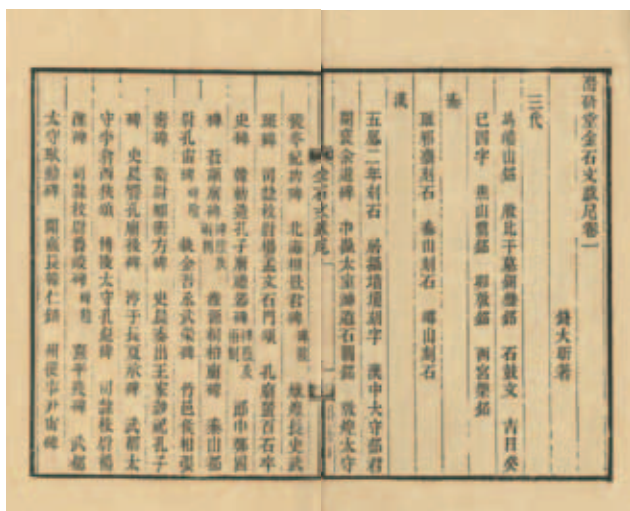 潛研堂金石文跋尾卷一
錢大昕著
三代
焦山銘 殷比干墓銅盤銘 石鼓文 吉日癸
巳四字 焦山鼎銘 西宮槃銘
秦
琅邪臺刻石 泰山刻石 嶧山刻石
漢
五鳳二年刻石 居攝墳壇刻字 漢中太守鄐君
開褒余道碑 中嶽太室神道石闕銘 敦煌太守
金石文跋尾
裴岑紀功碑 北海相景君碑 碑陰 敦煌長史武
斑碑 司隸校尉楊孟文石門頌 孔廟置百石卒
史碑 韓勑造孔子廟禮器碑 碑陰及兩側 郎中鄭固
碑 蒼頡廟碑 碑陰及兩側 桐柏廟碑 泰山都
尉孔宙碑 碑陰 執金吾丞武榮碑 竹邑侯相張
壽碑 衛尉卿衡方碑 史晨奏出王家穀祀孔子
碑 史晨饗孔廟後碑 淳于長夏承碑 武都太
守李翕西狹頌 博陵太守孔彪碑 司隸校尉楊
淮碑 司隸校尉魯峻碑 碑陰 熹平殘碑 武都
太守耿勳碑 聞憙長韓仁銘 州從事尹宙碑